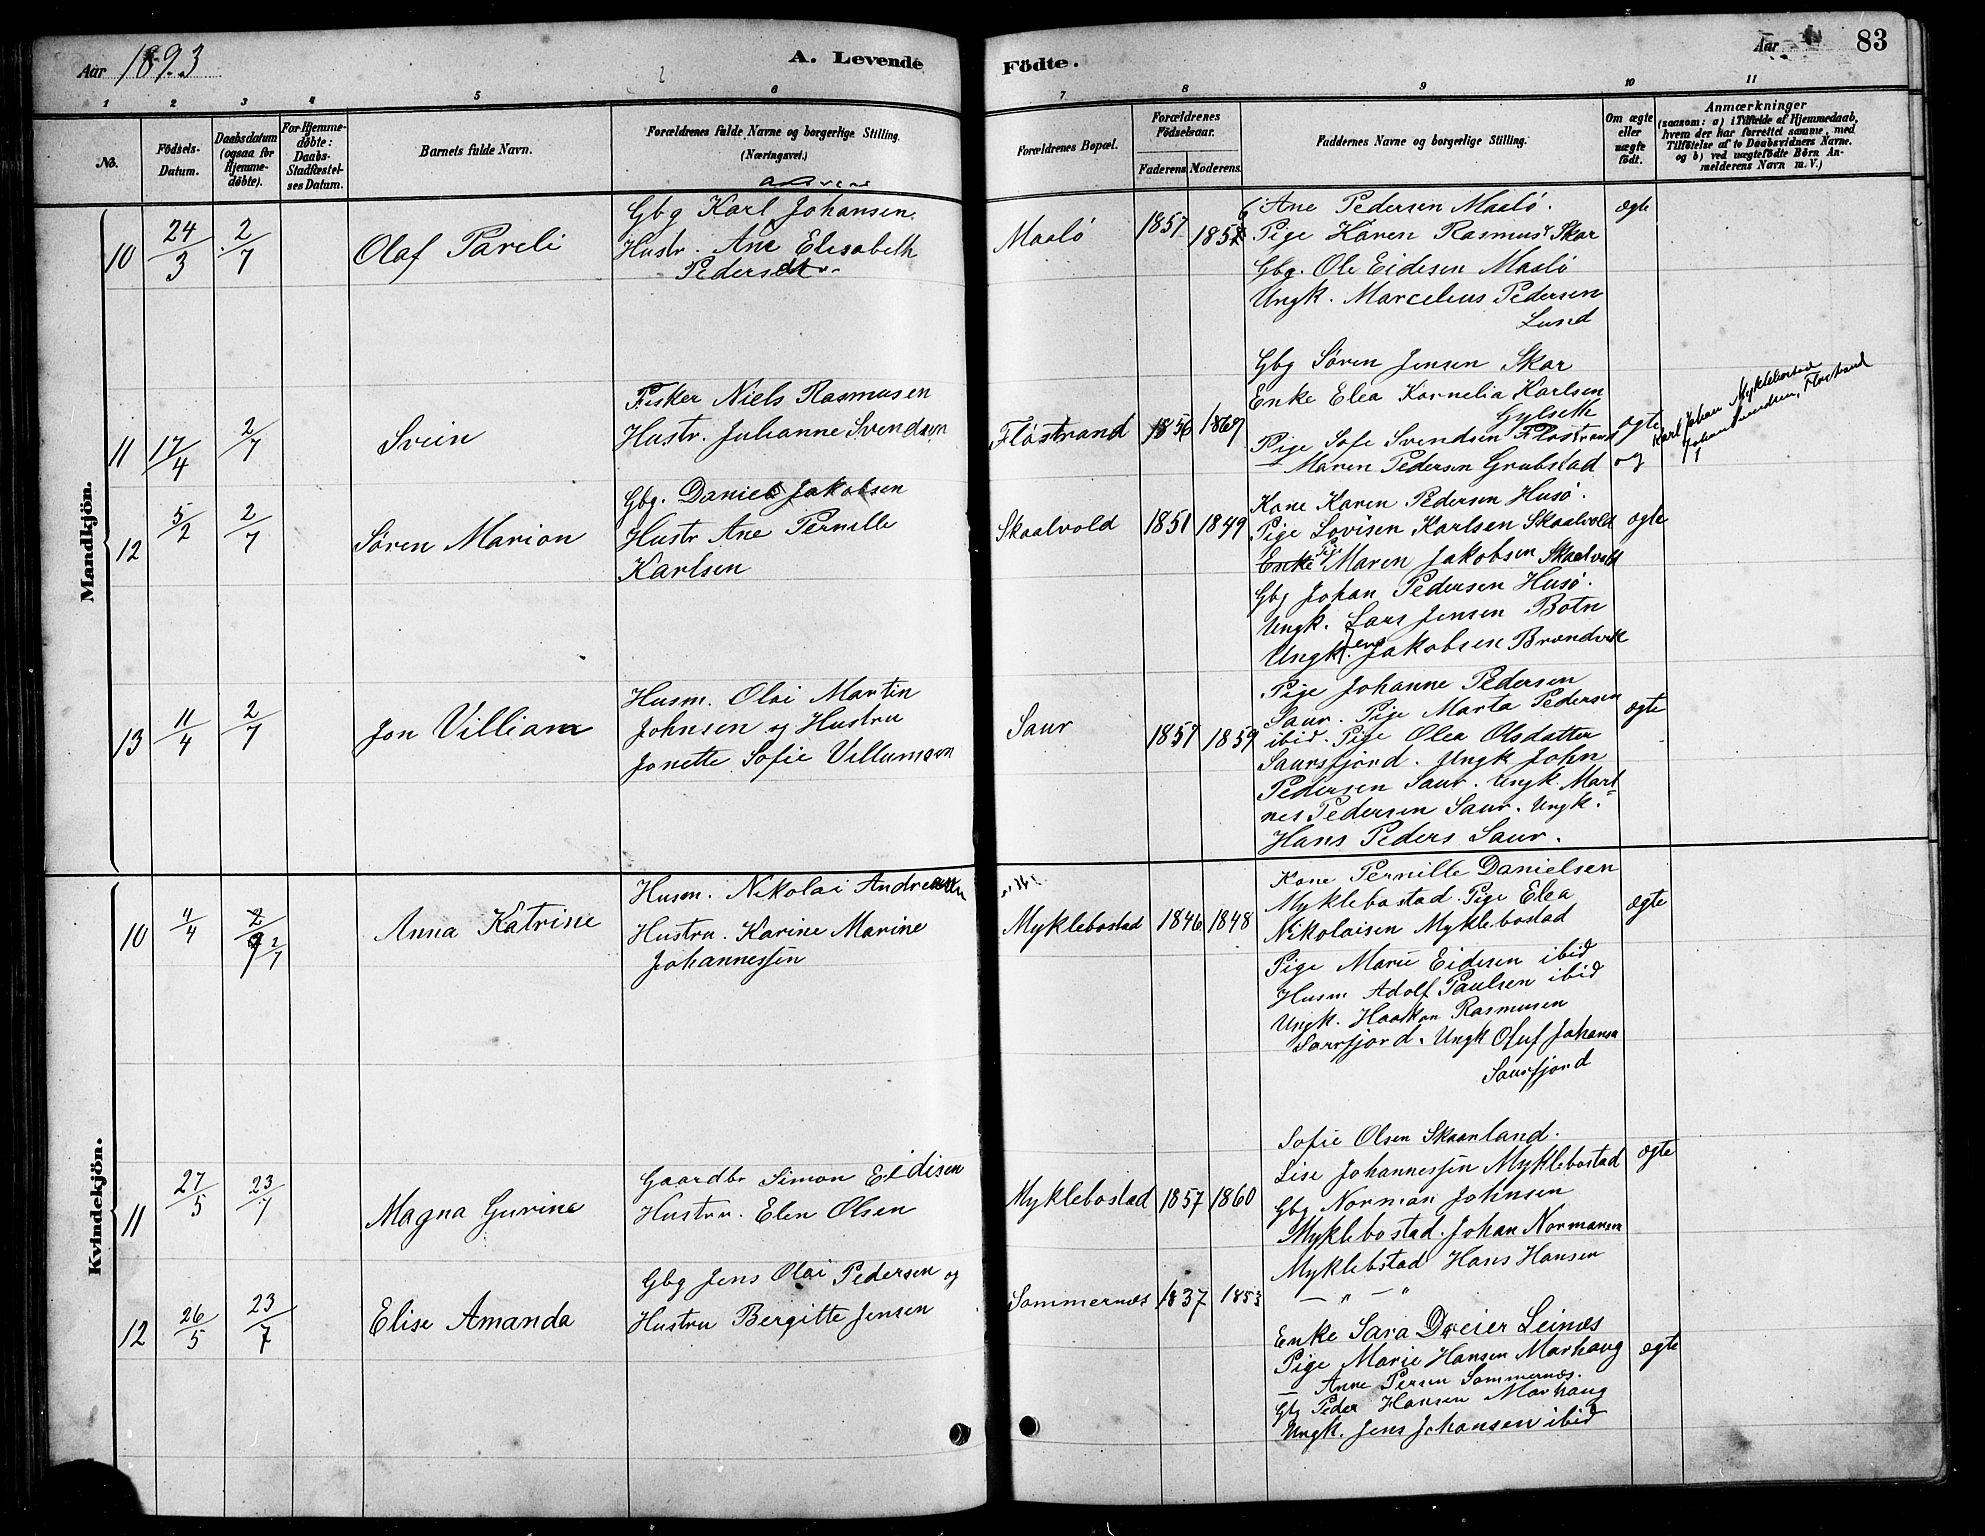 Aar 1893
A. Levende Födte.
Aar
83
1 2 3 4 5 6 7 8 9 10 11
No.
Födsels-Datum.
Daabsdatum (ogsaa for Hjemme-döbte).
For Hjemme-döbte: Daabs-Stadfæstel-ses Datum.
Barnets fulde Navn.
Forældrenes fulde Navne og borgerlige Stilling.
(Næringsvei.)
Forældrenes Bopæl.
Forældrenes Födselsaar.
Faderens Moderens.
Faddernes Navne og borgerlige Stilling.
Om ægte eller uægte födt.
Anmærkninger
(saasom: a) i Tilfælde af Hjemmedaab,
hvem der har forrettet samme, med
Tilföielse af to Daabsvidners Navne.
og b) ved uægtefödte Börn An-
melderens Navn m. V.)
Mandkjön.
10 24/3 2/7 Olaf Pareli
Gbg Karl Johansen
Hustr. Ane Elisabeth
Pedersdtr.
Maalö 1857
Ane Pedersen Maalö.
Pige Karen Rasmus Skar
Gbg. Ole Eidesen Maalö
Ungk. Marcelius Pedersen
Lund
ægte
Gbg Sören Jensen Skar
11 17/4 2/7 Svein
Fisker Niels Rasmusen
Hustr. Julianne Svendsen
Flöstrand 1856 1869
Enke Elea Kornelia Karlsen
Gylseth
Pige Sofe Svendsen Flöstrand
— Maren Pedersen Grubstad
ægte
og
Karl Johan Myklebostad
Johan Svendsen, Flöstrand
12 5/2 2/7 Sören Marion
Gbg. Daniel Jakobsen
Hustr Ane Pernille
Karlsen
Skaalvold 1851 1849
Kone Karen Pedersen Husö.
Pige Lovisen Karlsen Skaalvold
Enke Pige Maren Jakobsen Skaalvold
Gbg Johan Pedersen Husö.
Ungk. Lars Jensen Botn
Ungk. Jens Jakobsen Brandvik
ægte
13 11/4 2/7 Jon Villiam
Husm. Olai Martin
Johnsen og Hustru
Jonette Sofie Villumsen
Saur 1857 1859
Pige Johanne Pedersen
Saur. Pige Marta Pedersen
ibid. Pige Olea Olsdatter
Saursfjord. Ungk John
Pedersen Saur. Ungk. Mart
nes Pedersen Saur. Ungk.
Hans Peders Saur.
ægte
Kvindekjön.
10 4/4 2/7 Anna Katrine
Husm. Nikolai Andreassen
Hustru. Karine Marine
Johannessen
Myklebostad 1846 1848
Kone Pernille Danielsen
Myklebostad. Pige Elea
Nikolaisen Myklebostad
Pige Marie Eidesen ibid
Husm Adolf Paulsen ibid
Ungk. Haakon Rasmusen
Sorrfjord. Ungk Oluf Johansen
Saursfjord
ægte
11 27/5 23/7 Magna Gurine
Gaardbr Simon Eidisen
Hustru. Elen Olsen
Myklebostad 1857 1860
Sofie Olsen Skaarland.
Lise Johannessen Myklebostad
Gbg Norman Johnsen
Myklebostad. Johan Normansen
Myklebstad Hans Hansen
— " — "
ægte
12 26/5 23/7 Elise Amanda
Gbg Jens Olai Pedersen og
Hustru Bergitte Jensen
Sommernæs 1837 1853
Enke Sara Dreier Leinæs
Pige Marie Hansen Marhaug
— Anne Persen Sommernæs.
Gbg Peder Hansen Marhaug
Ungk. Jens Johansen ibid
ægte